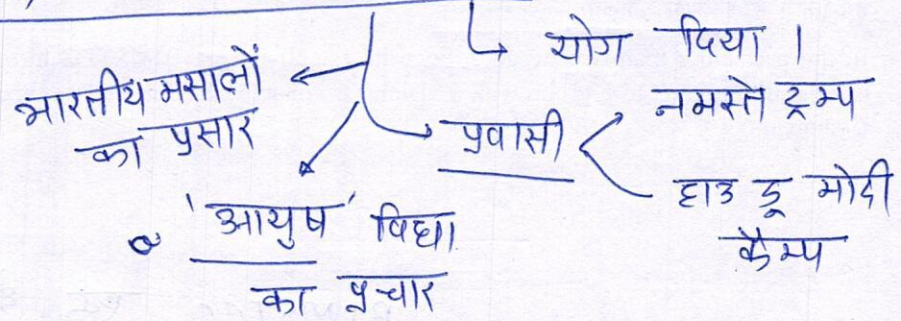 योग दिया ।
भारतीय मसालों
का प्रसार
प्रवासी
नमस्ते ट्रम्प
हाउ डू मोदी
कैम्प
'आयुष' विधा
का प्रचार